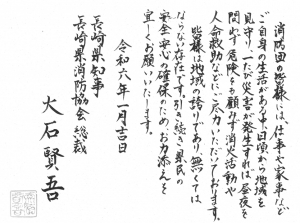 消防団の皆様は、仕事や家事など
ご自身の生活がある中、日頃から地域を
見守り、一たび災害が発生すれば昼夜を
問わず危険を顧みず消火活動や
人命救助などにご尽力いただいております。
皆様は地域の誇りであり、無くては
ならない存在です。引き続き、県民の
安全・安心の確保のためお力添えを
宜しくお願いいたします。
令和六年一月吉日
長崎県知事
長崎県消防協会 総裁
大石賢吾